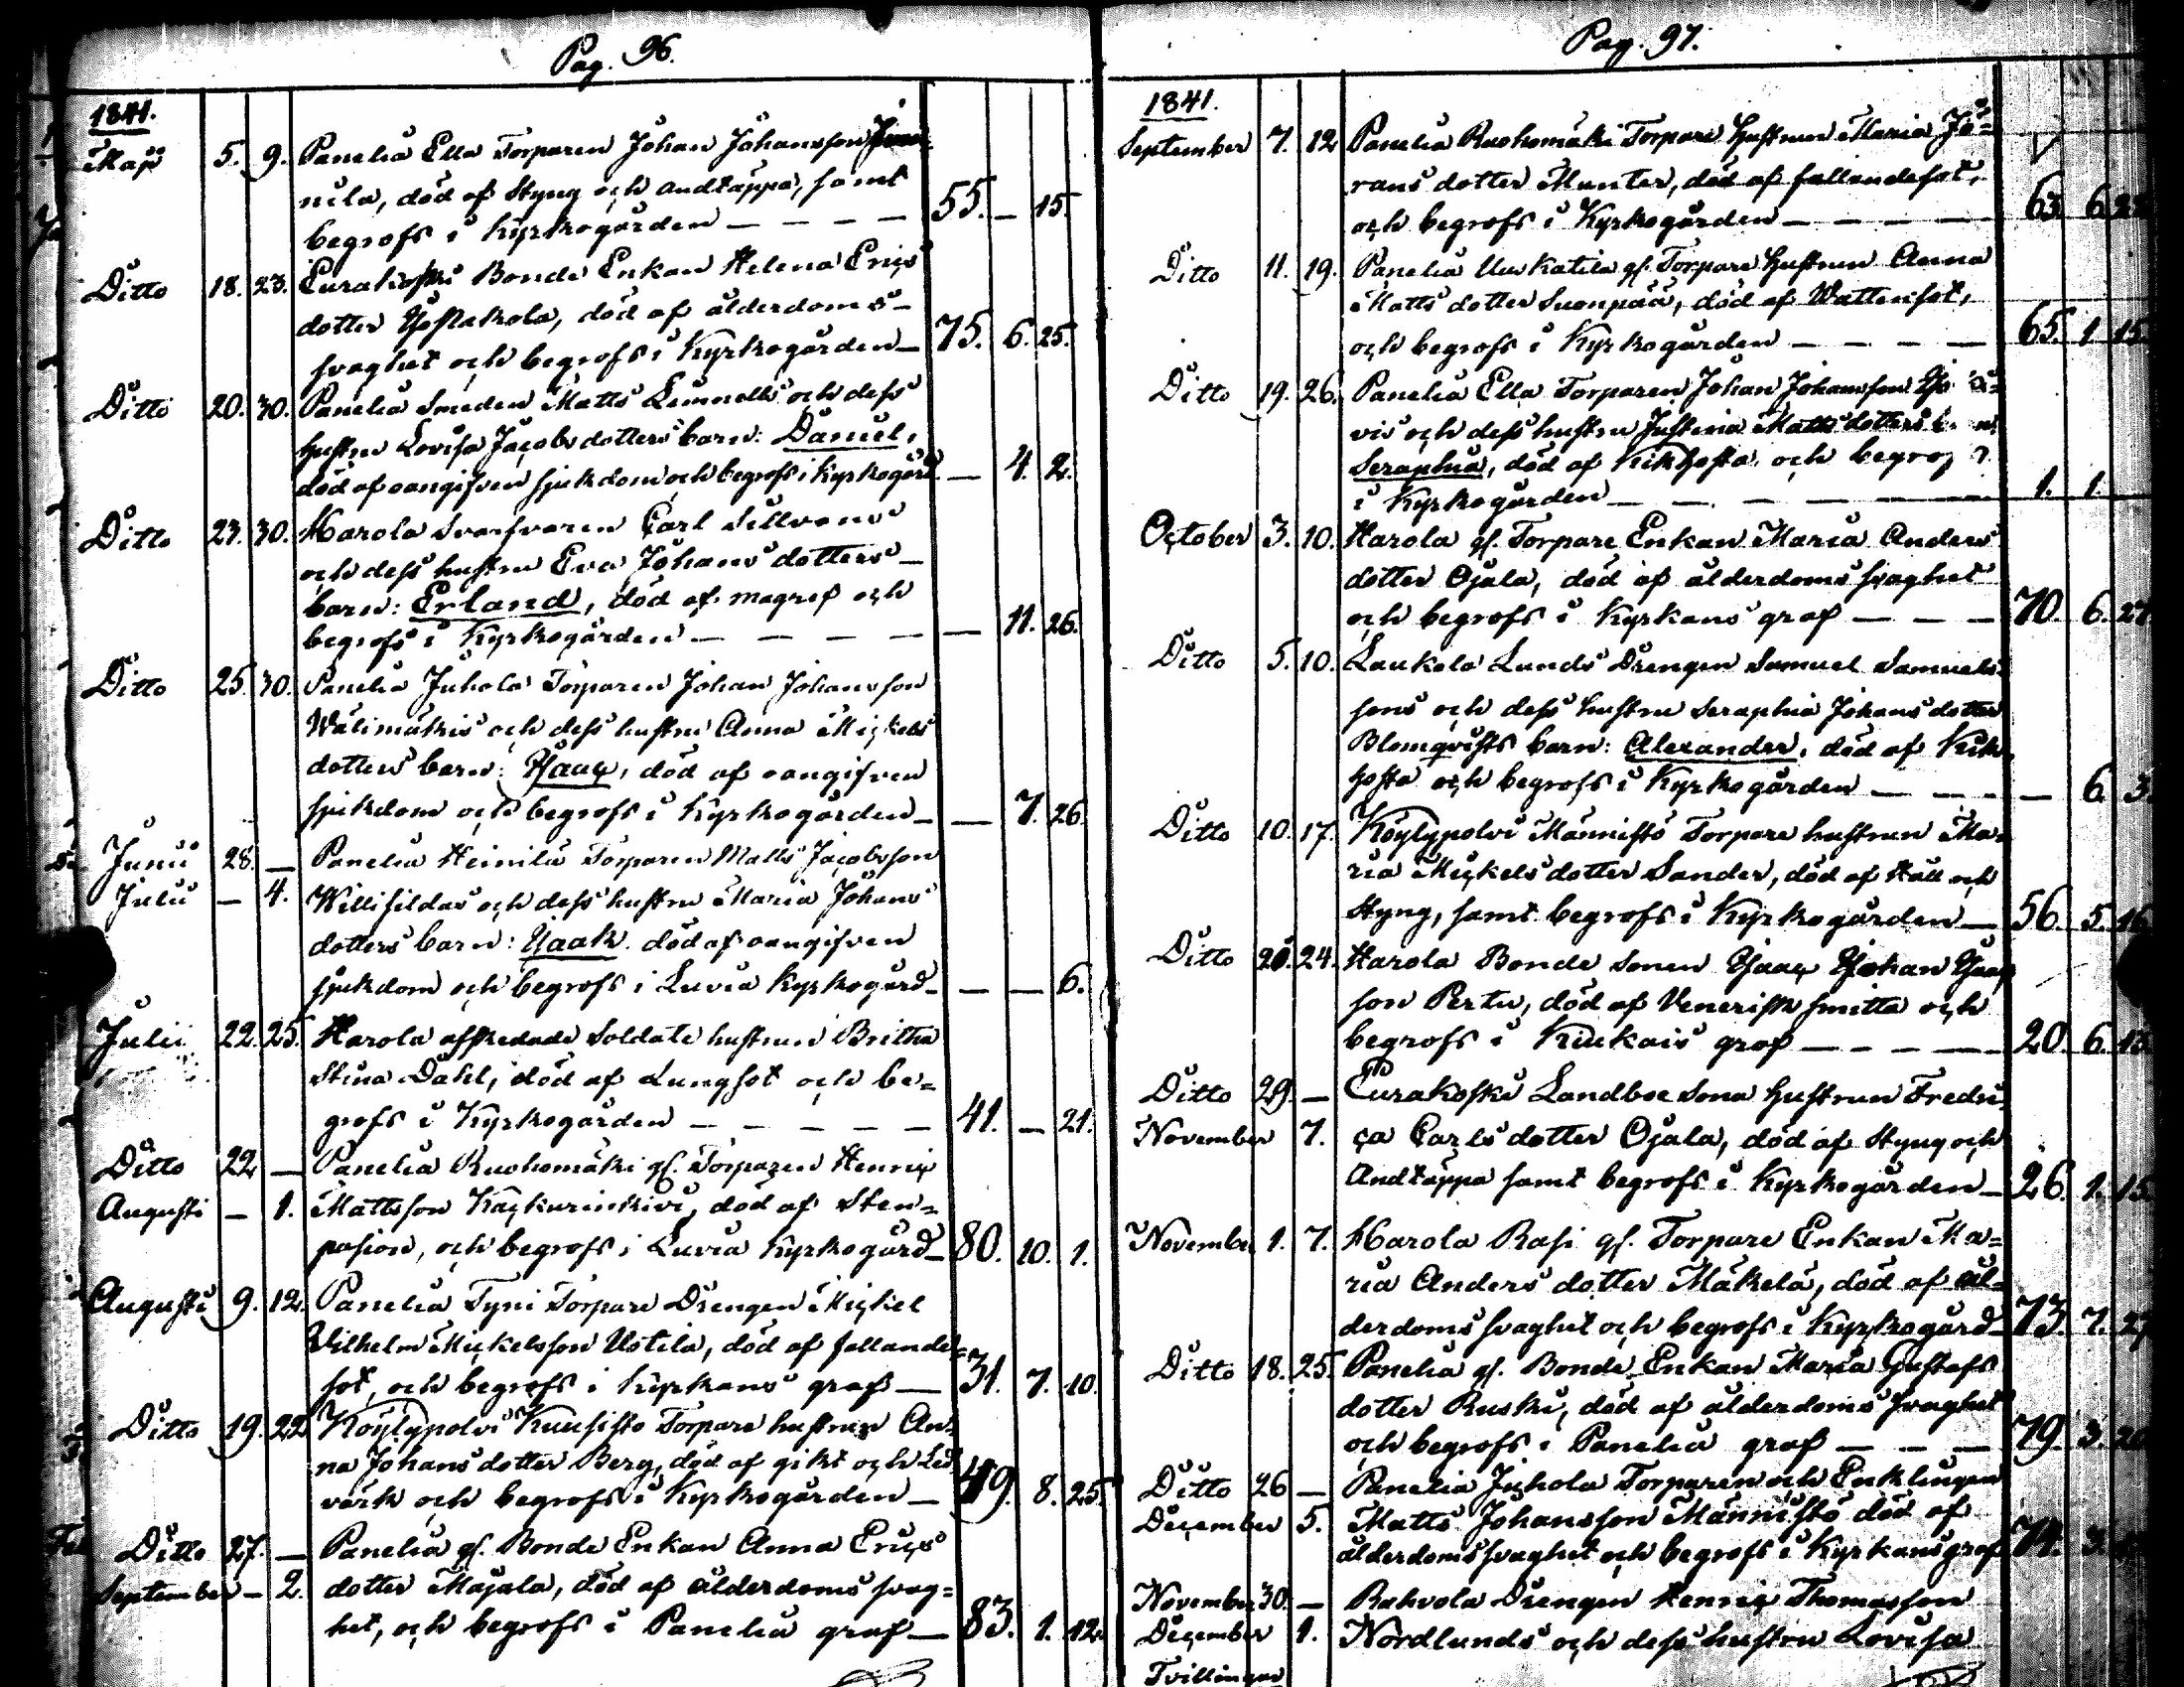 Pag. 96.
1841.
Maji 5. 9. Panelia Ella Torparen Johan Johansson
nila, död af Styng och andtäppa, samt
begrofs i Kyrkogården — — — — 55. — 15.
Ditto 18. 23. Eurakoski Bonde Enkan Helena Erics
dotter Yostakola, död af ålderdoms-
svaghet och begrofs i Kyrkogården — 75. 6. 25.
Ditto 20. 30. Panelia Smeden Matts Lemnells och dess
hustru Lovisa Jacobsdotters barn: Daniel,
död af oangifven sjukdom och begrofs i Kyrkogård. — 4. 2.
Ditto 23. 30. Harola Svarfvaren Carl Sellvans
och dess hustru Eva Johans dotters
barn: Erland, död af magref och
begrofs i Kyrkogården — — — — — 11. 26.
Ditto 25. 30. Panelia Juhola Torparen Johan Johansson
Wälimäkis och dess hustru Anna Mickels
dotters barn: Isaac, död af oangifven
sjukdom och begrofs i Kyrkogården — — 7. 26.
Junii 28. — Panelia Heinilä Torparen Matts Jacobsson
Julii — 4. Willisildas och dess hustru Maria Johans
dotters barn: Isaak. död af oangifven
sjukdom och begrofs i Luvia Kyrkogård — — — 6.
Julii 22. 25. Harola afskedade Soldate hustrun Britha
Stina Dahl, död af Lungsot och be=
grofs i Kyrkogården — — — — — 41. — 21.
Ditto 22 — Panelia Ruohomäki gl. Torparen Henric
Augusti — 1. Mattsson Kackurinkivi, död af Sten=
pasion, och begrofs i Luvia Kyrkogård — 80. 10. 1.
Augusti 9. 12. Panelia Tyni Torpare Drengen Mickel
Vilhelm Mickelsson Uotila, död af fallande=
sot, och begrofs i Kyrkans graf — 31. 7. 10.
Ditto 19. 22. Köylypolvi Kuusisto Torpare hustrun An=
na Johans dotter Berg, död af gikt och Led
värk och begrofs i Kyrkogården — 49. 8. 25.
Ditto 27. — Panelia gl. Bonde Enkan Anna Erics
September — 2. dotter Majala, död af ålderdoms svag=
het, och begrofs i Panelia graf — 83. 1. 12.
Pag. 97.
1841.
September 7. 12 Panelia Ruohomäki Torpare Hustrun Maria Jö=
rans dotter Munter, död af fallandesot,
och begrofs i Kyrkogården — — — — 63. 6
Ditto 11. 19. Panelia Uukatila gl. Torpare Hustrun Anna
Matts dotter Suonpää, död af Wattensot,
och begrofs i Kyrkogården — — — — 65. 1 15.
Ditto 19. 26. Panelia Ella Torparen Johan Johansson
vis och dess hustru Justina Matts dotters
Seraphia, död af Kikhosta och
i Kyrkogården — — — — — — 1. 1.
October 3. 10. Harola gl. Torpare Enkan Maria Anders
dotter Ojala, död af ålderdoms svaghet
och begrofs i Kyrkans graf — — — 70. 6. 27
Ditto 5. 10. Laukola Lunds Drengen Samuel Samuels
sons och dess hustru Seraphia Johans dotter
Blomqvists barn: Alexander, död af Kik
hosta och begrofs i Kyrkogården — — — — 6. 3.
Ditto 10. 17. Köylypolvi Männistö Torpare hustrun Ma=
ria Mickels dotter Sander, död af Håll och
Styng, samt begrofs i Kyrkogården — 56. 5. 16
Ditto 20. 24. Harola Bonde Sonen Isaac Johan Isaac
son Pertu, död af Venerisk smitta och
begrofs i Kiukais graf — — — — 20. 6.
Ditto 29. — Eurakoski Landboe Sona Hustrun Fredri=
November 7. ca Carls dotter Ojala, död af Styng och
Andtäppa samt begrofs i Kyrkogården — 26. 1. 15
November 1. 7. Harola Rasi gl. Torpare Enkan Ma=
ria Anders dotter Mäkelä, död af ål=
derdoms svaghet och begrofs i Kyrkogård — 73. 7. 27
Ditto 18. 25. Panelia gl. Bonde Enkan Maria Gustafs
dotter Ruski, död af ålderdoms svaghet
och begrofs i Panelia graf — — — 79. 3. 20
Ditto 26 — Panelia Juhola Torparen och Enklingen
December 5. Matts Johansson Männistö död af
ålderdoms svaghet och begrofs i Kyrkans graf 74. 3.
November 30. — Rahvola Drengen Henric Thomasson
December 1. Nordlunds och dess hustru Lovisa
Tvillingar